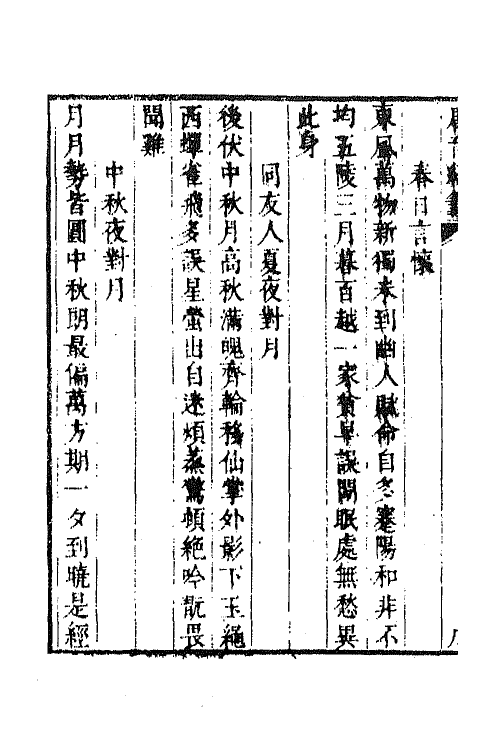 春日言懷
東風萬物新獨未到幽人賦命自多蹇陽和非不
均五陵三月暮百越一家貧早誤閒眠處無愁異
此身
同友人夏夜對月
後伏中秋月高秋滿魄齊輪移仙掌外影下玉繩
西蟬雀飛多誤星螢出自迷煩蒸驚頓絶吟翫畏
聞雞
中秋夜對月
月月勢皆圓中秋朗最偏萬方期一夕到曉是經